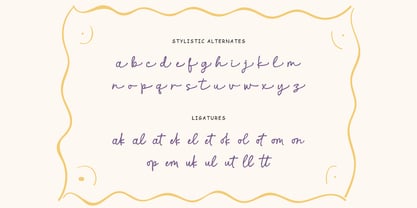 STYLISTIC ALTERNATES
a b c d e f g h i j k l m
n o p q r s t u v w x y z
LIGATURES
ak al at ek el et ok ol ot om on
op em uk ul ut ll tt